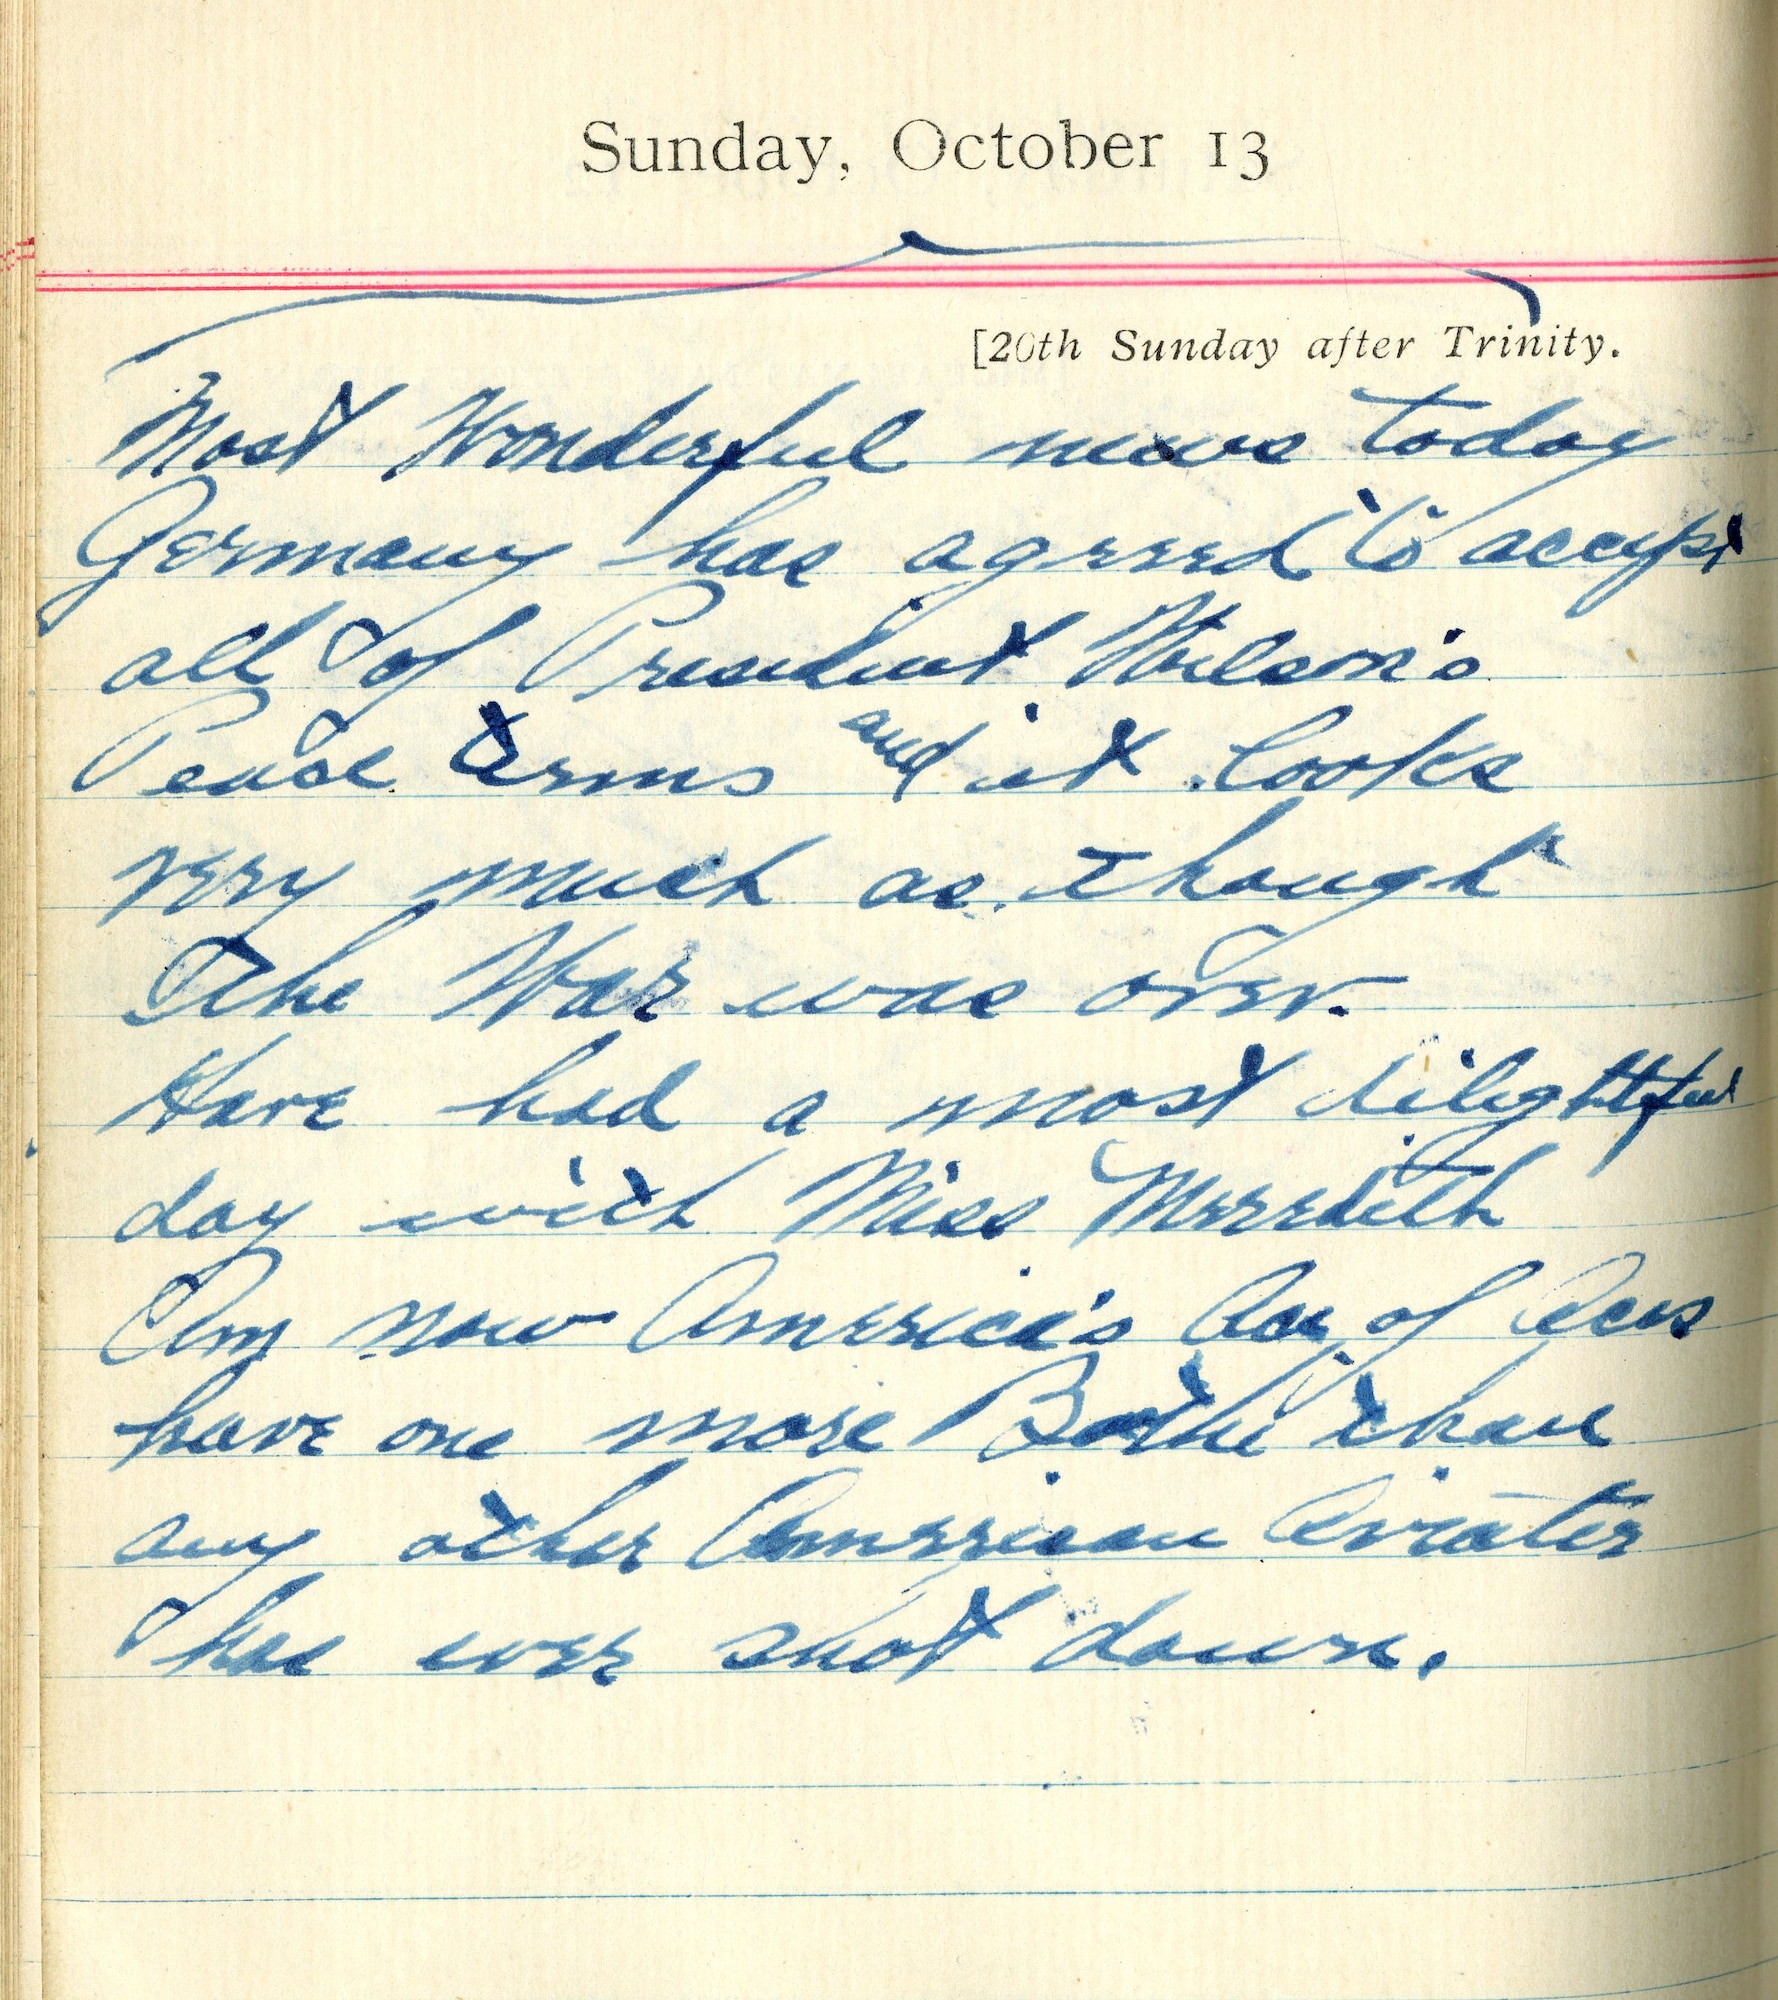 Sunday, October 13
[20th Sunday after Trinity.
Most Wonderful news today
Germany has agreed to accept
all of President Wilson's
Peace terms and it looks
very much as though
the War was over.
Have had a most delightful
day with Miss Meredith
Am now America's Ace of Aces
have one more Boche than
any other American Aviater
has ever shot down.